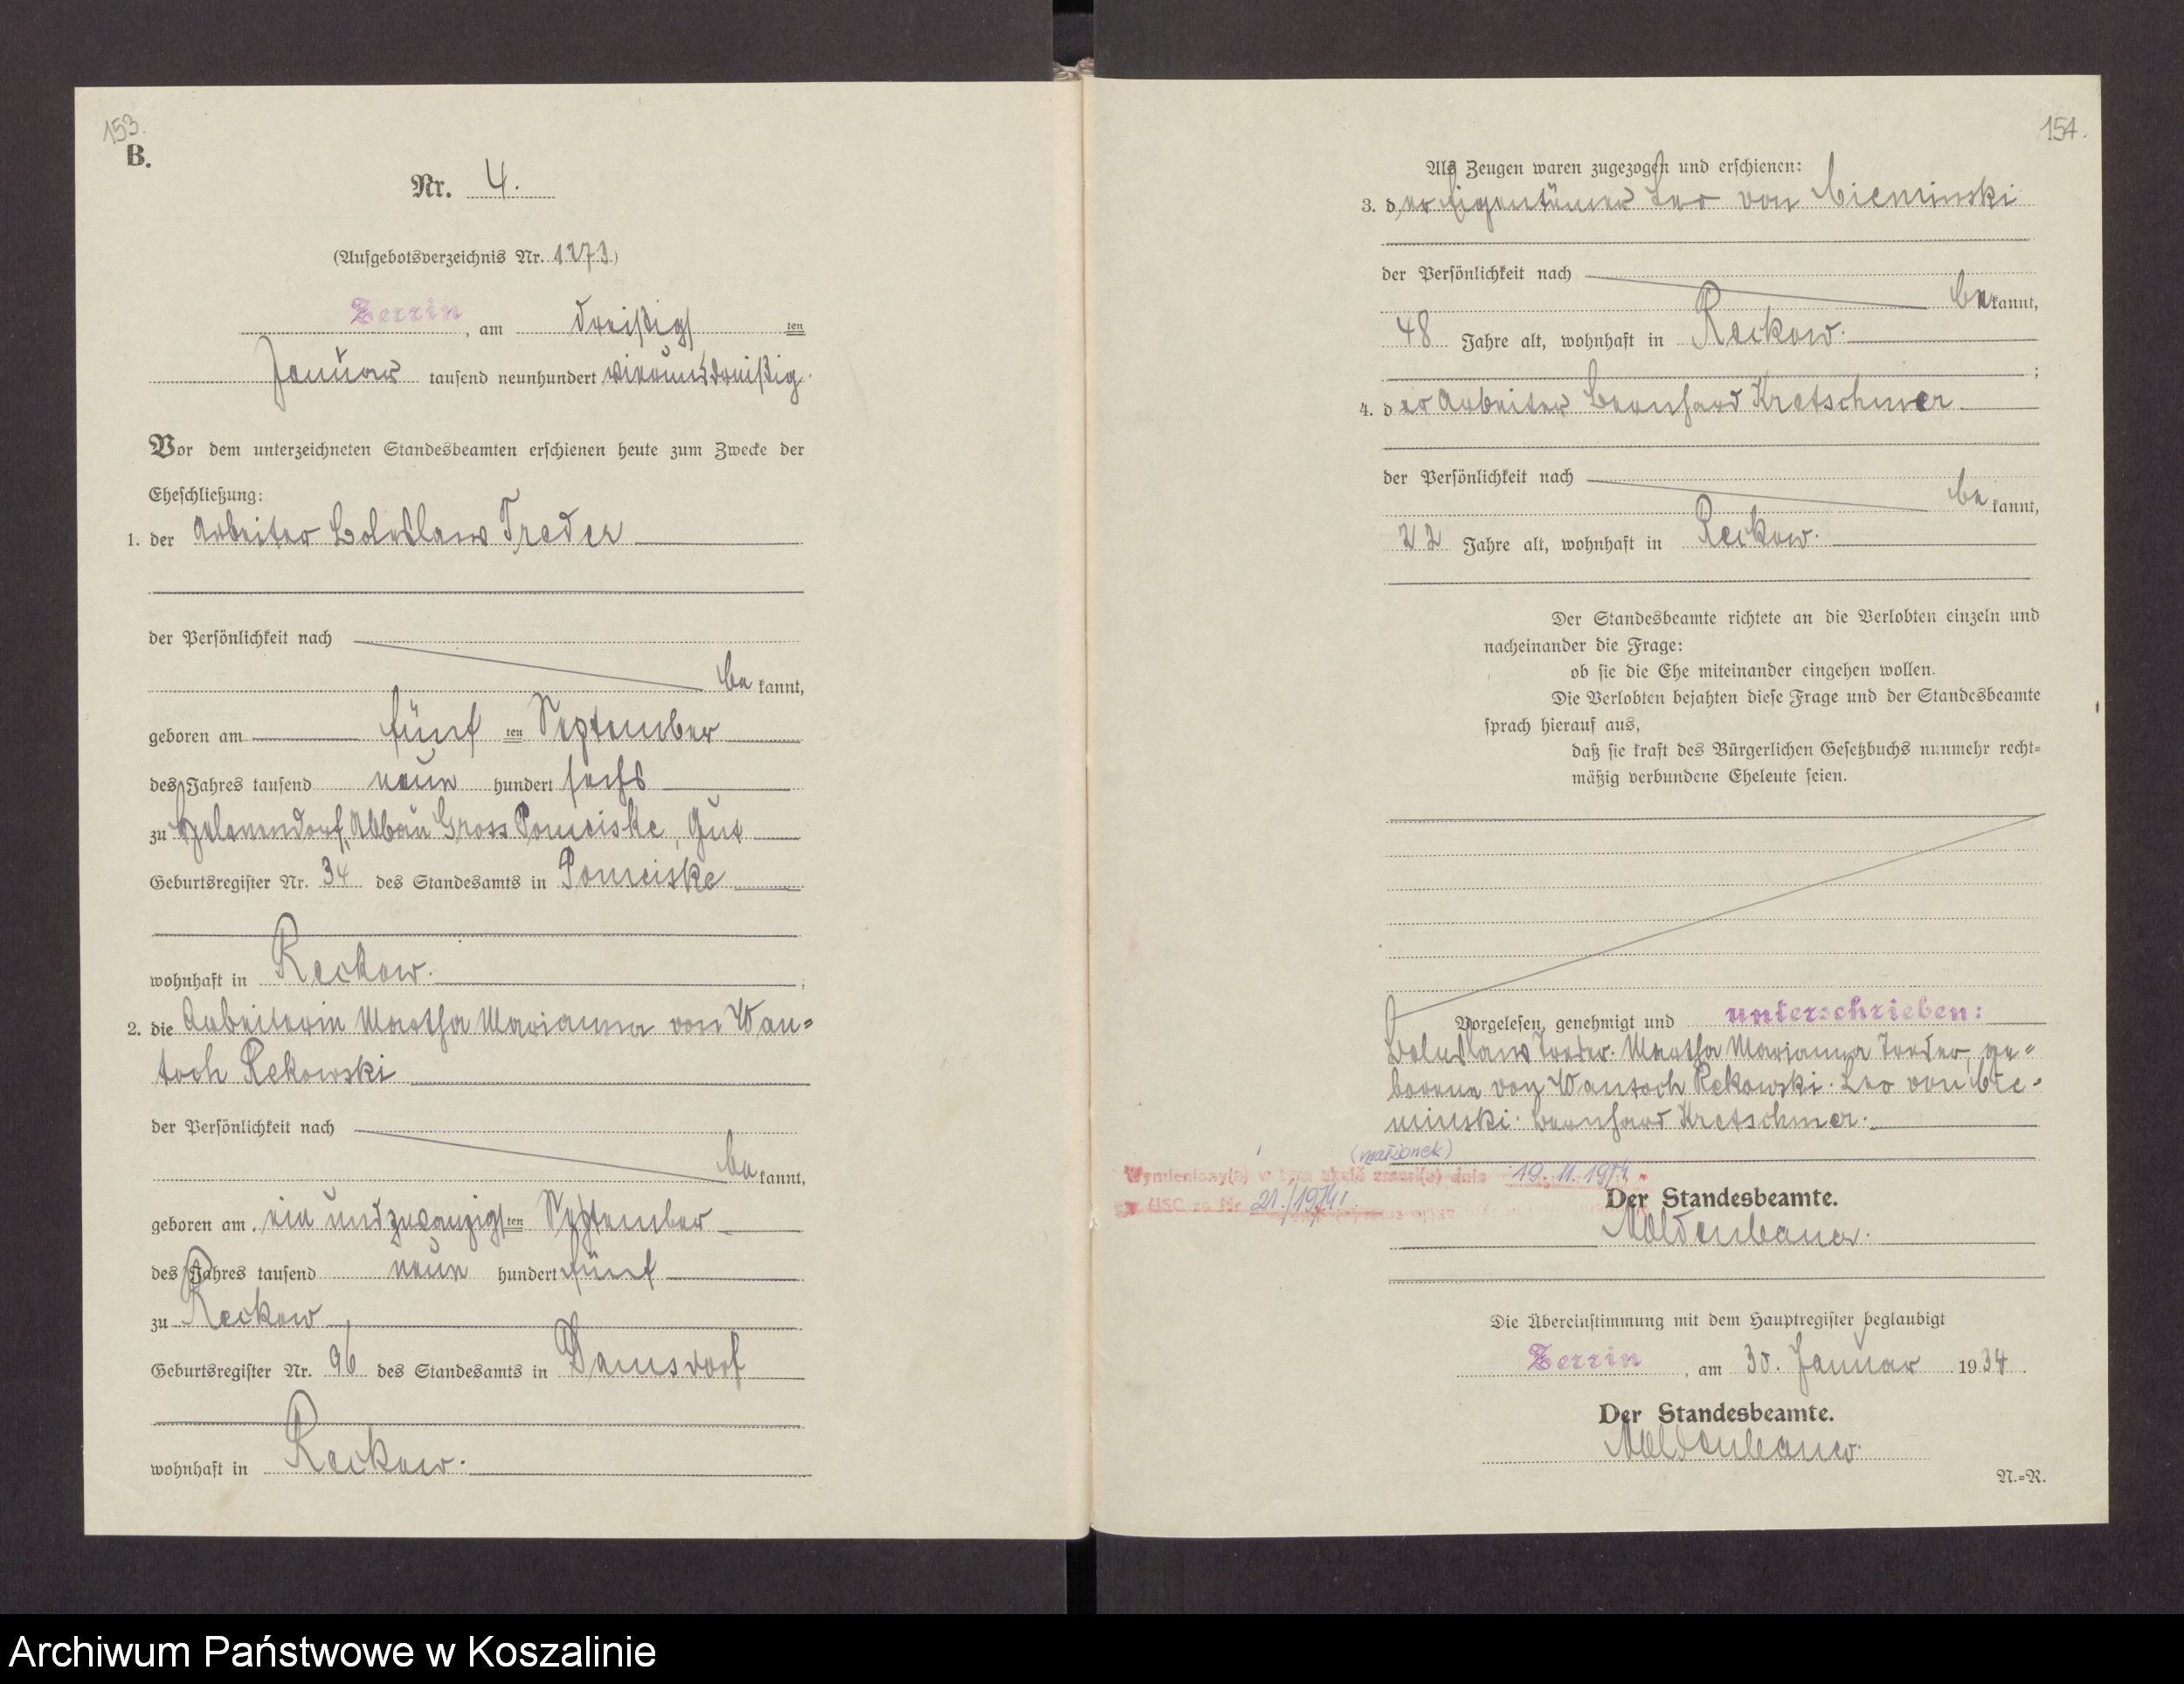 153.
B.
Nr. 4.
(Aufgebotsverzeichnis Nr. 1273)
Zerrin, am dreißigsten
Januar tausend neunhundert vierunddreißig.
Vor dem unterzeichneten Standesbeamten erschienen heute zum Zwecke der
Eheschließung:
1. der Arbeiter Boleslaws Treder
der Persönlichkeit nach
bekannt,
geboren am fünften September
des Jahres tausend neun hundert sechs
zu Helenendorf, Abbau Gross Pomeiske, Gut
Geburtsregister Nr. 34 des Standesamts in Pomeiske
wohnhaft in Reckow.;
2. die Arbeiterin Martha Marianna von Wan=
toch Rekowski
der Persönlichkeit nach
bekannt,
geboren am einundzwanzigsten September
des Jahres tausend neun hundert fünf
zu Reckow
Geburtsregister Nr. 96 des Standesamts in Damsdorf
wohnhaft in Reckow.
154.
Als Zeugen waren zugezogen und erschienen:
3. der Eigentümer Leo von Cieminski
der Persönlichkeit nach
bekannt,
48 Jahre alt, wohnhaft in Reckow.
;
4. der Arbeiter Bernhard Kretschmer
der Persönlichkeit nach
bekannt,
22 Jahre alt, wohnhaft in Reckow.
Der Standesbeamte richtete an die Verlobten einzeln und
nacheinander die Frage:
ob sie die Ehe miteinander eingehen wollen.
Die Verlobten bejahten diese Frage und der Standesbeamte
sprach hierauf aus,
daß sie kraft des Bürgerlichen Gesetzbuchs nunmehr recht=
mäßig verbundene Eheleute seien.
Vorgelesen, genehmigt und unterschrieben:
Boleslaws Treder. Martha Marianna Treder, ge=
borene von Wantoch Rekowski. Leo von Cie=
minski. Bernhard Kretschmer.
(małżonek)
Wymieniony(a) w tym akcie zmarł(a) dnia 19. 11. 1974 r.
USC za Nr 21./1974r.
Der Standesbeamte.
Die Übereinstimmung mit dem Hauptregister beglaubigt
Zerrin, am 30. Januar 1934.
Der Standesbeamte.
N.=R.
Archiwum Państwowe w Koszalinie